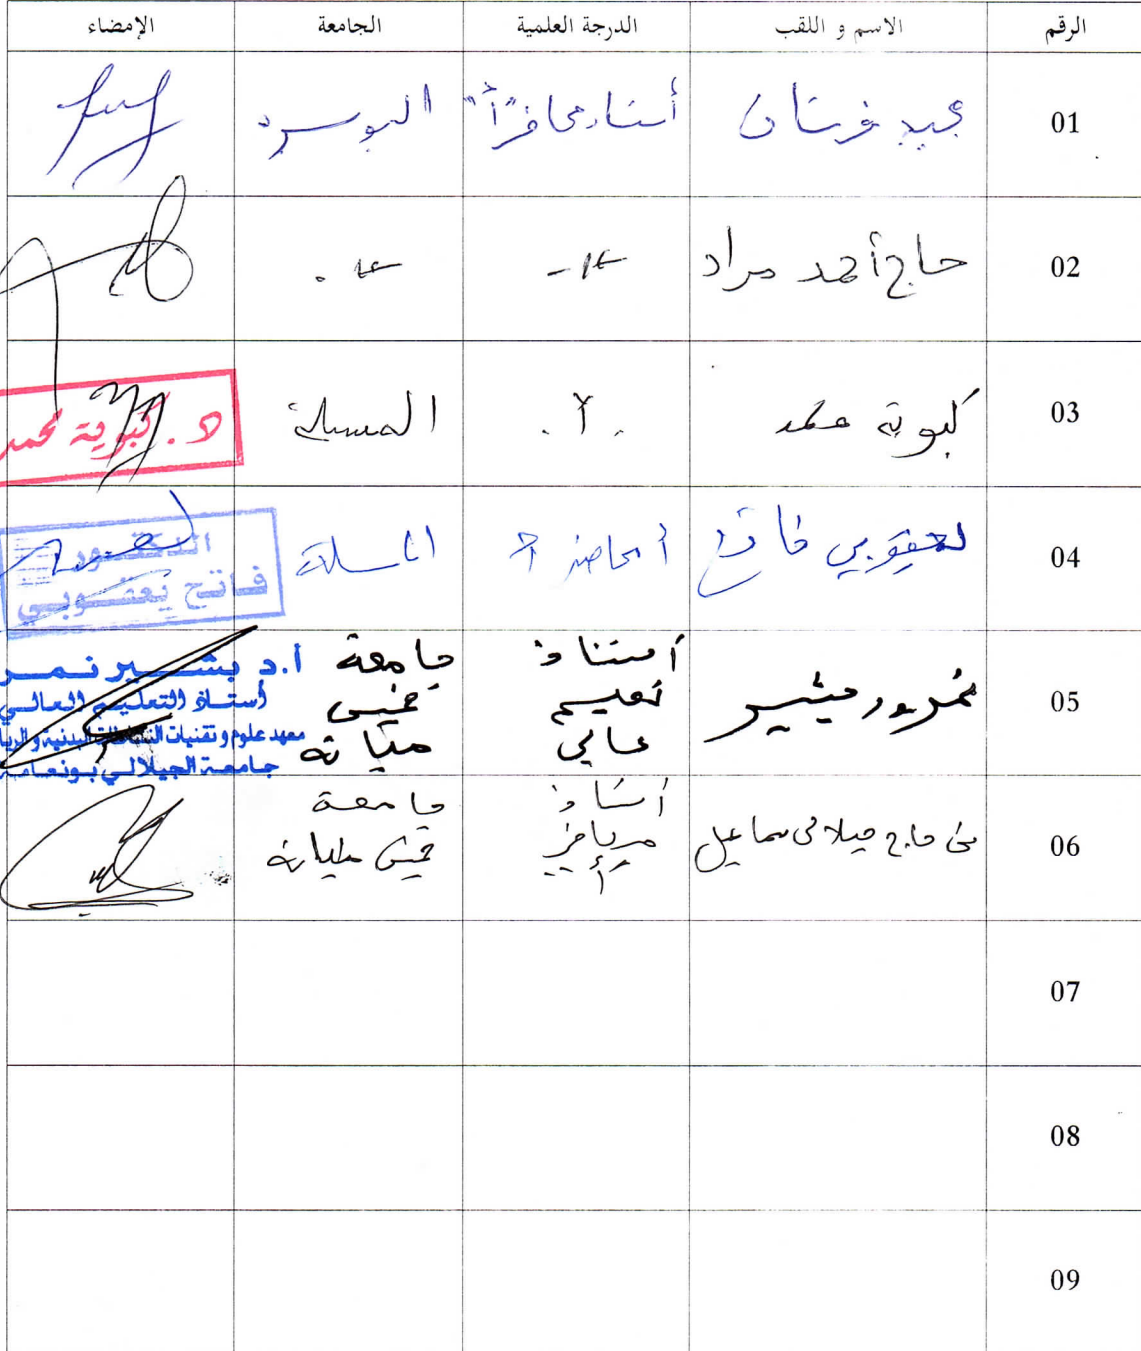 الرقم الاسم و اللقب الدرجة العلمية الجامعة الإمضاء
01 أستاذ محاضر "أ"
02 حاج أحمد مراد
03 كبوية محمد المسيلة
د. كبوية محمد
04 يعقوبي فاتح أ محاضر أ المسيلة
الدكتور
فاتح يعقوبي
05 بشير أستاذ تعليم عالي جامعة خميس مليانة
أ.د بشير نمر
أستاذ التعليم العالي
معهد علوم و تقنيات النشاطات البدنية و الريا
جامعة الجيلالي بونعامة
06 حاج جيلالي سماعيل أستاذ محاضر أ جامعة خميس مليانة
07
08
09